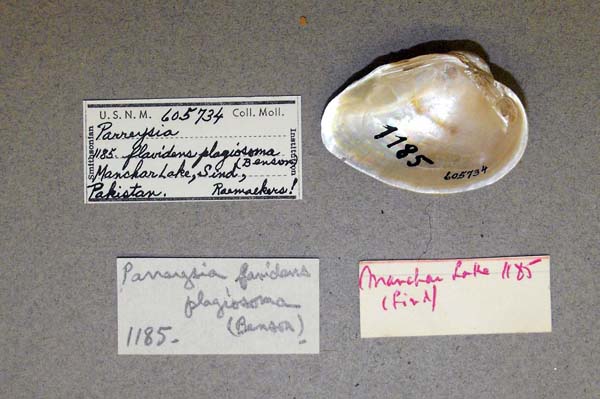 U.S.N.M. 605734 Coll. Moll.
Smithsonian
Institution
Parreysia
1185. flavidens plagiosoma
(Benson)
Manchar Lake, Sind,
Pakistan. Raemaekers!
1185
605734
Parreysia favidens
plagiosoma
(Benson)
1185.
Manchar Lake 1185
(Sind)